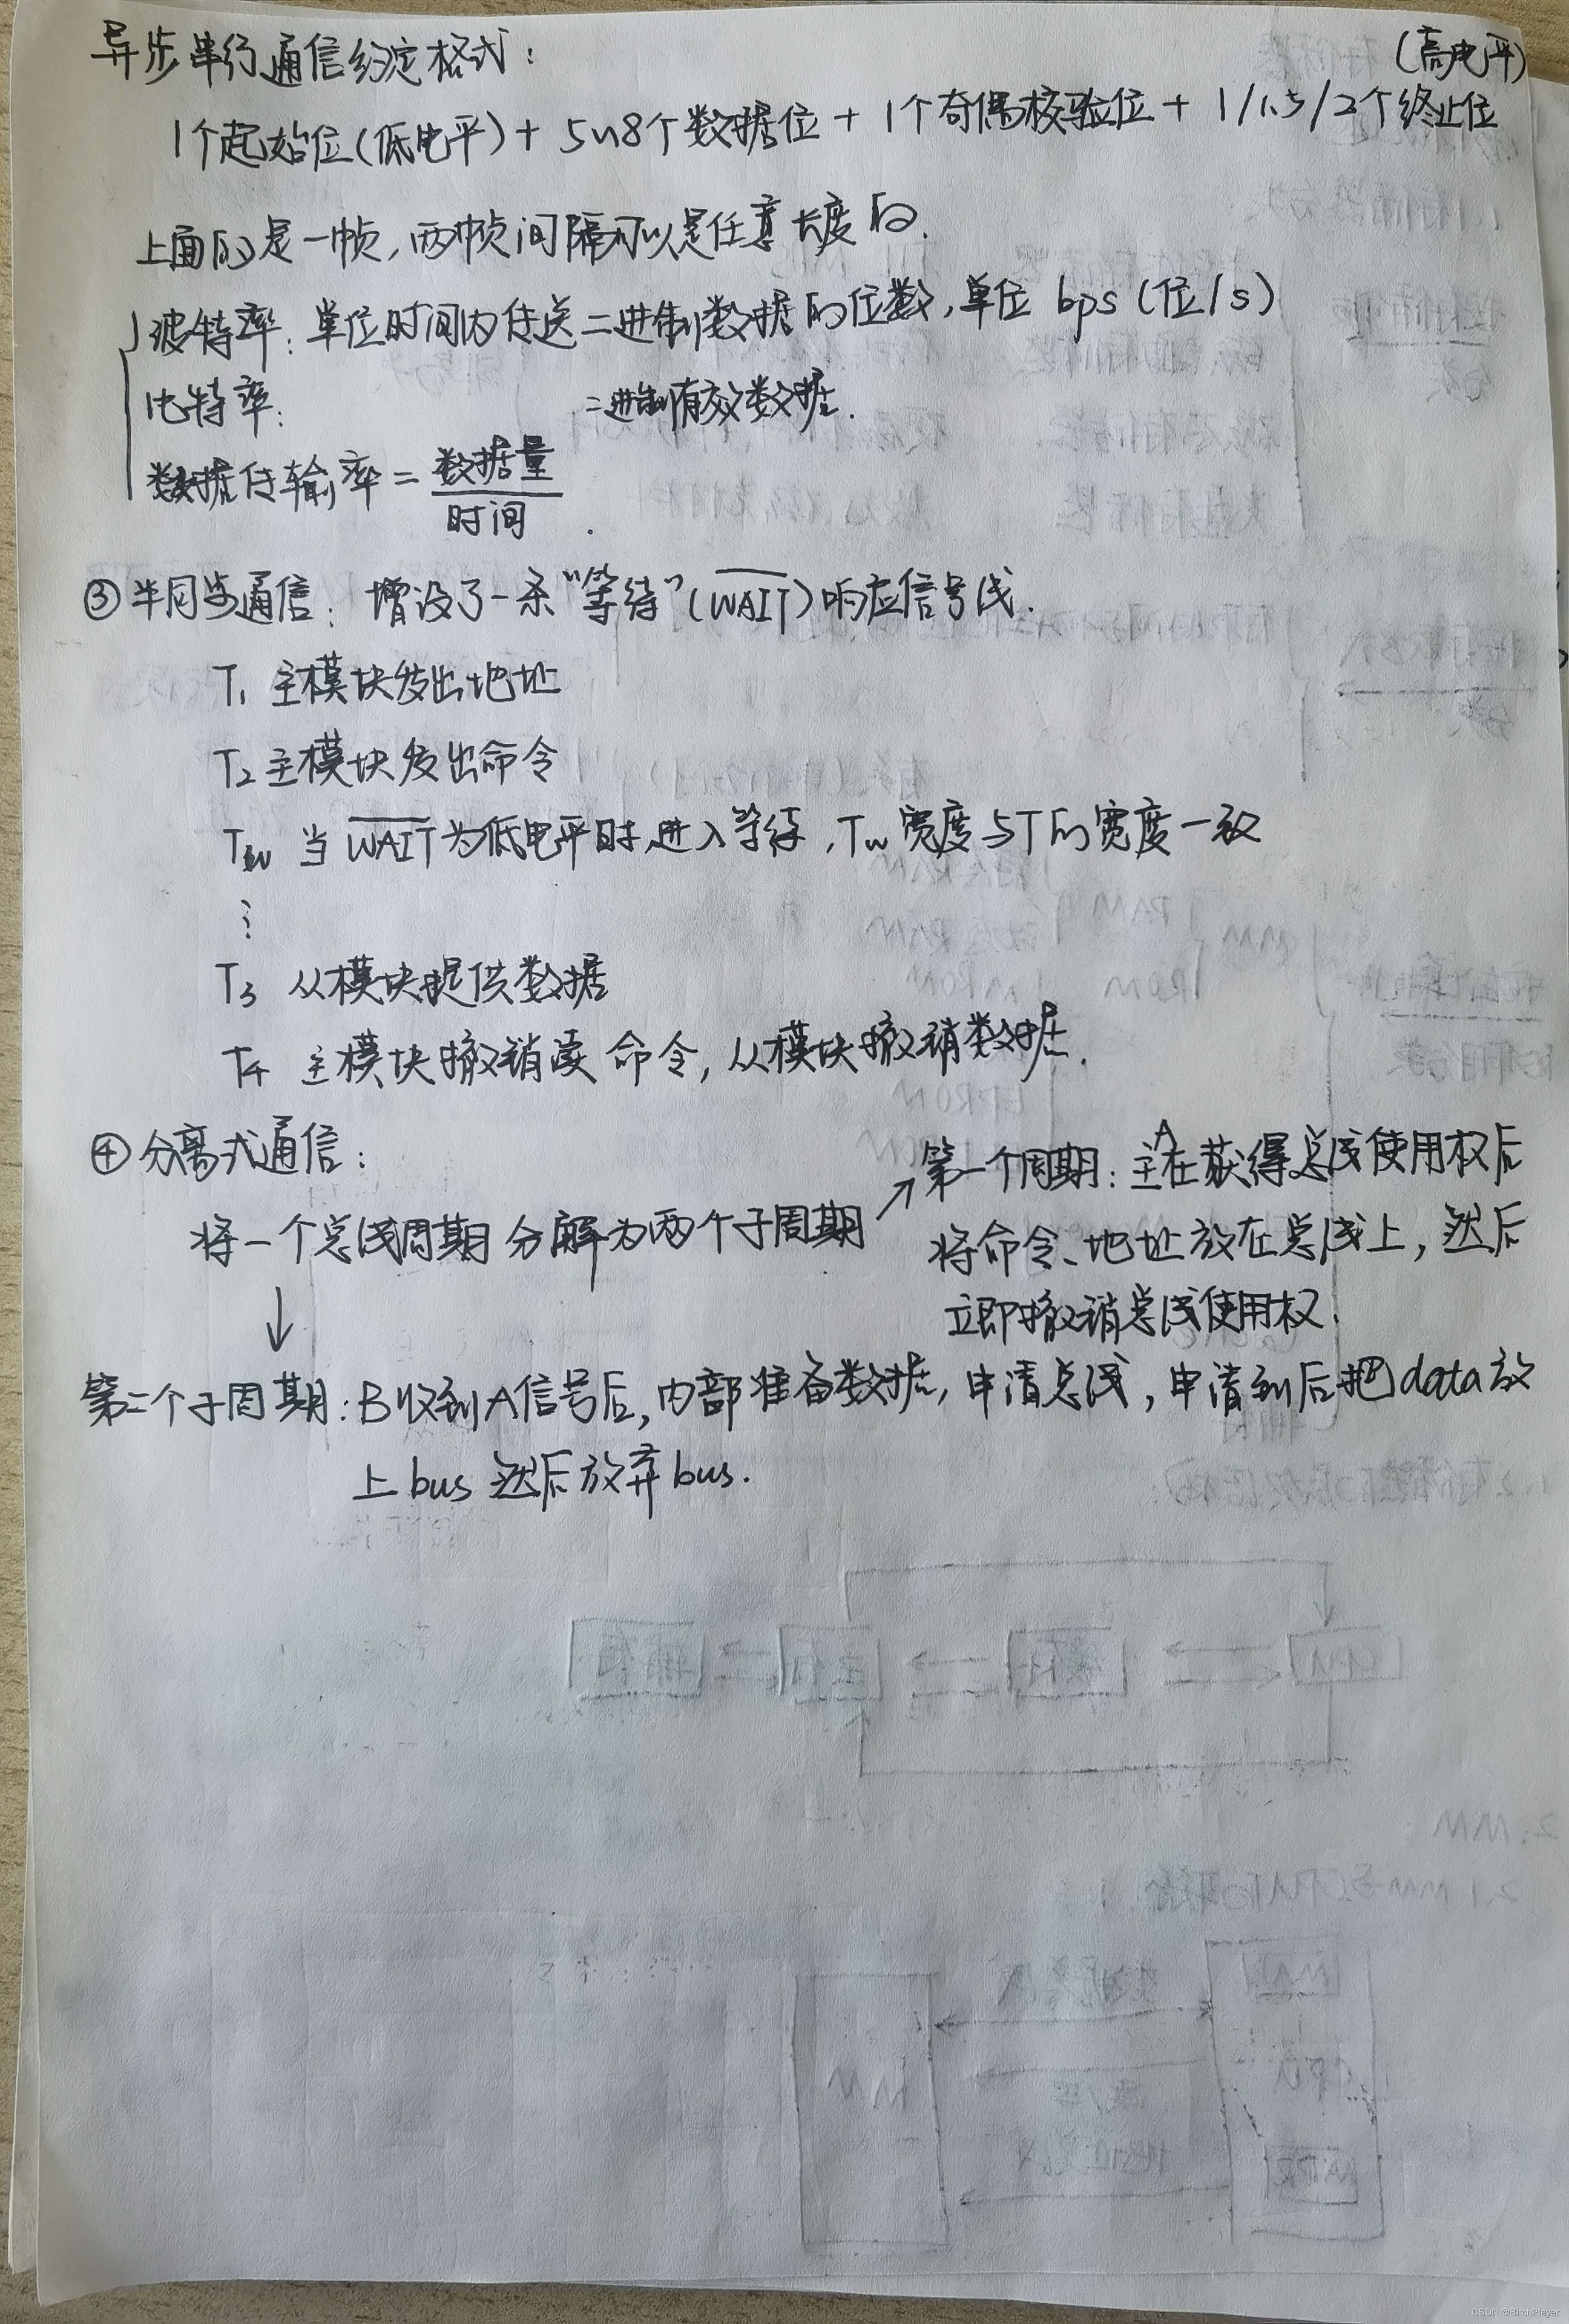 异步串行通信约定格式：
（高电平）
1个起始位（低电平）+ 5~8个数据位 + 1个奇偶校验位 + 1/1.5/2个终止位
上面的是一帧，两帧间隔可以是任意长度的.
波特率：单位时间内传送二进制数据的位数，单位 bps（位/s）
比特率：　　　　　　　二进制有效数据.
数据传输率 = 数据量
时间.
③半同步通信：增设了一条“等待”（WAIT）响应信号线.
T1 主模块发出地址
T2 主模块发出命令
Tw 当 WAIT 为低电平时，进入等待，Tw 宽度与T的宽度一致
⋮
T3 从模块提供数据
T4 主模块撤销读命令，从模块撤销数据.
④分离式通信：
将一个总线周期分解为两个子周期
↗第一个周期：主A在获得总线使用权后
将命令、地址放在总线上，然后
立即撤销总线使用权.
↓
第二个子周期：B收到A信号后，内部准备数据，申请总线，申请到后把data放
上bus 然后放弃bus.
CSDN @BitchPlayer